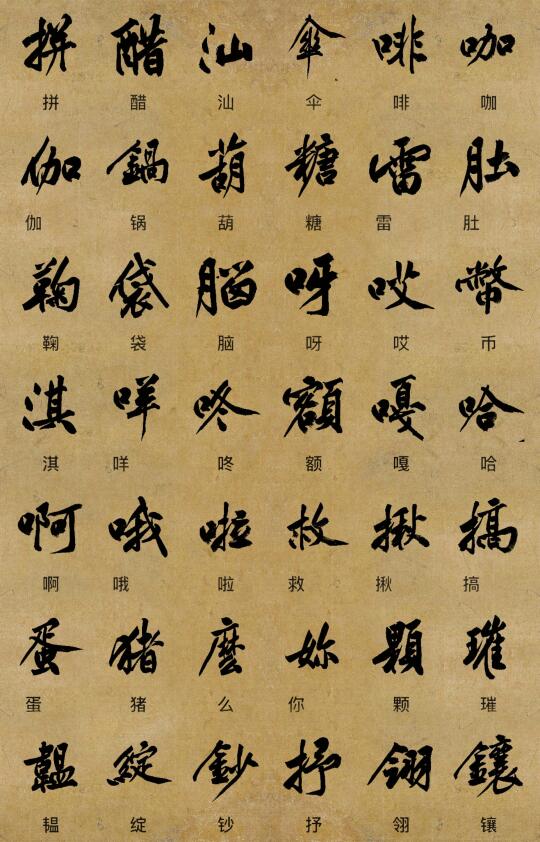 拼 醋 汕 傘 啡 咖
拼 醋 汕 伞 啡 咖
伽 鍋 葫 糖 雷 肚
伽 锅 葫 糖 雷 肚
鞠 袋 脳 呀 哎 幣
鞠 袋 脑 呀 哎 币
淇 咩 咚 額 嘎 哈
淇 咩 咚 额 嘎 哈
啊 哦 啦 救 揪 搞
啊 哦 啦 救 揪 搞
蛋 猪 麼 妳 顆 璀
蛋 猪 么 你 颗 璀
韞 綻 鈔 抒 翎 鑲
韫 绽 钞 抒 翎 镶